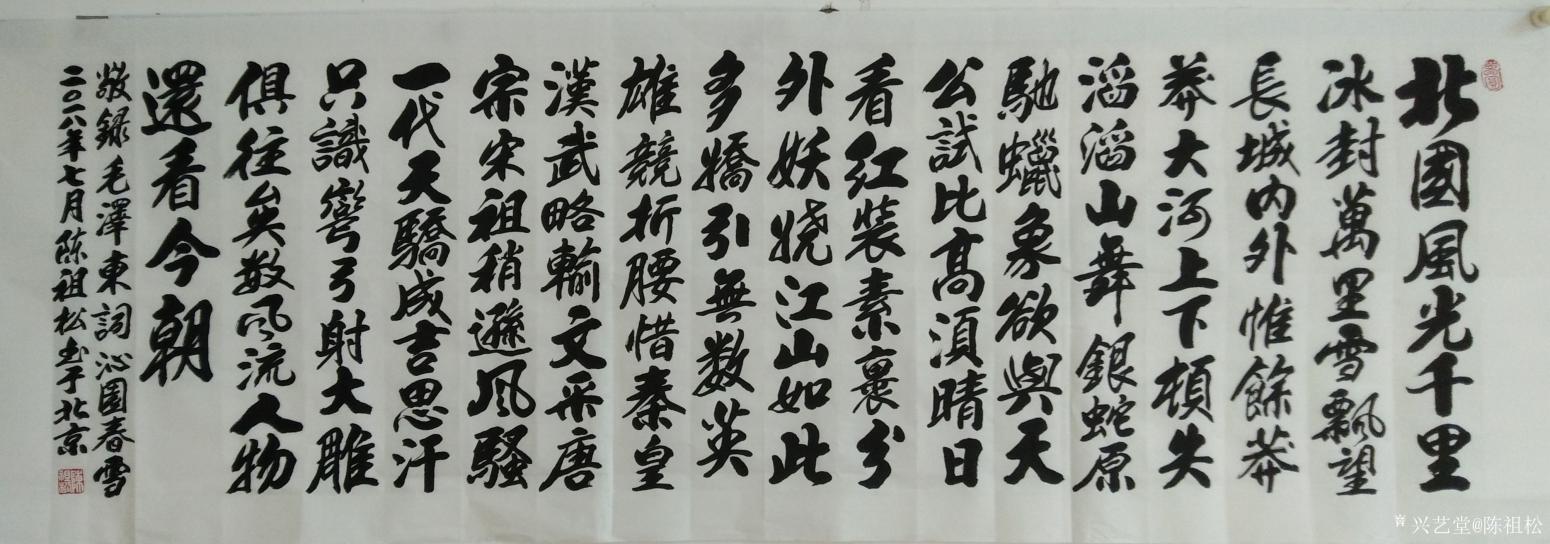 北國風光千里
冰封萬里雪飄望
長城內外惟餘莽
莽大河上下頓失
滔滔山舞銀蛇原
馳蠟象欲與天
公試比高須晴日
看红裝素裹分
外妖娆江山如此
多嬌引無数英
雄競折腰惜秦皇
漢武略輸文采唐
宗宋祖稍遜風騷
一代天驕成吉思汗
只識彎弓射大雕
俱往矣数风流人物
還看今朝
敬録毛澤東詞沁園春雪
二〇一八年七月陈祖松书于北京
兴艺堂@陈祖松